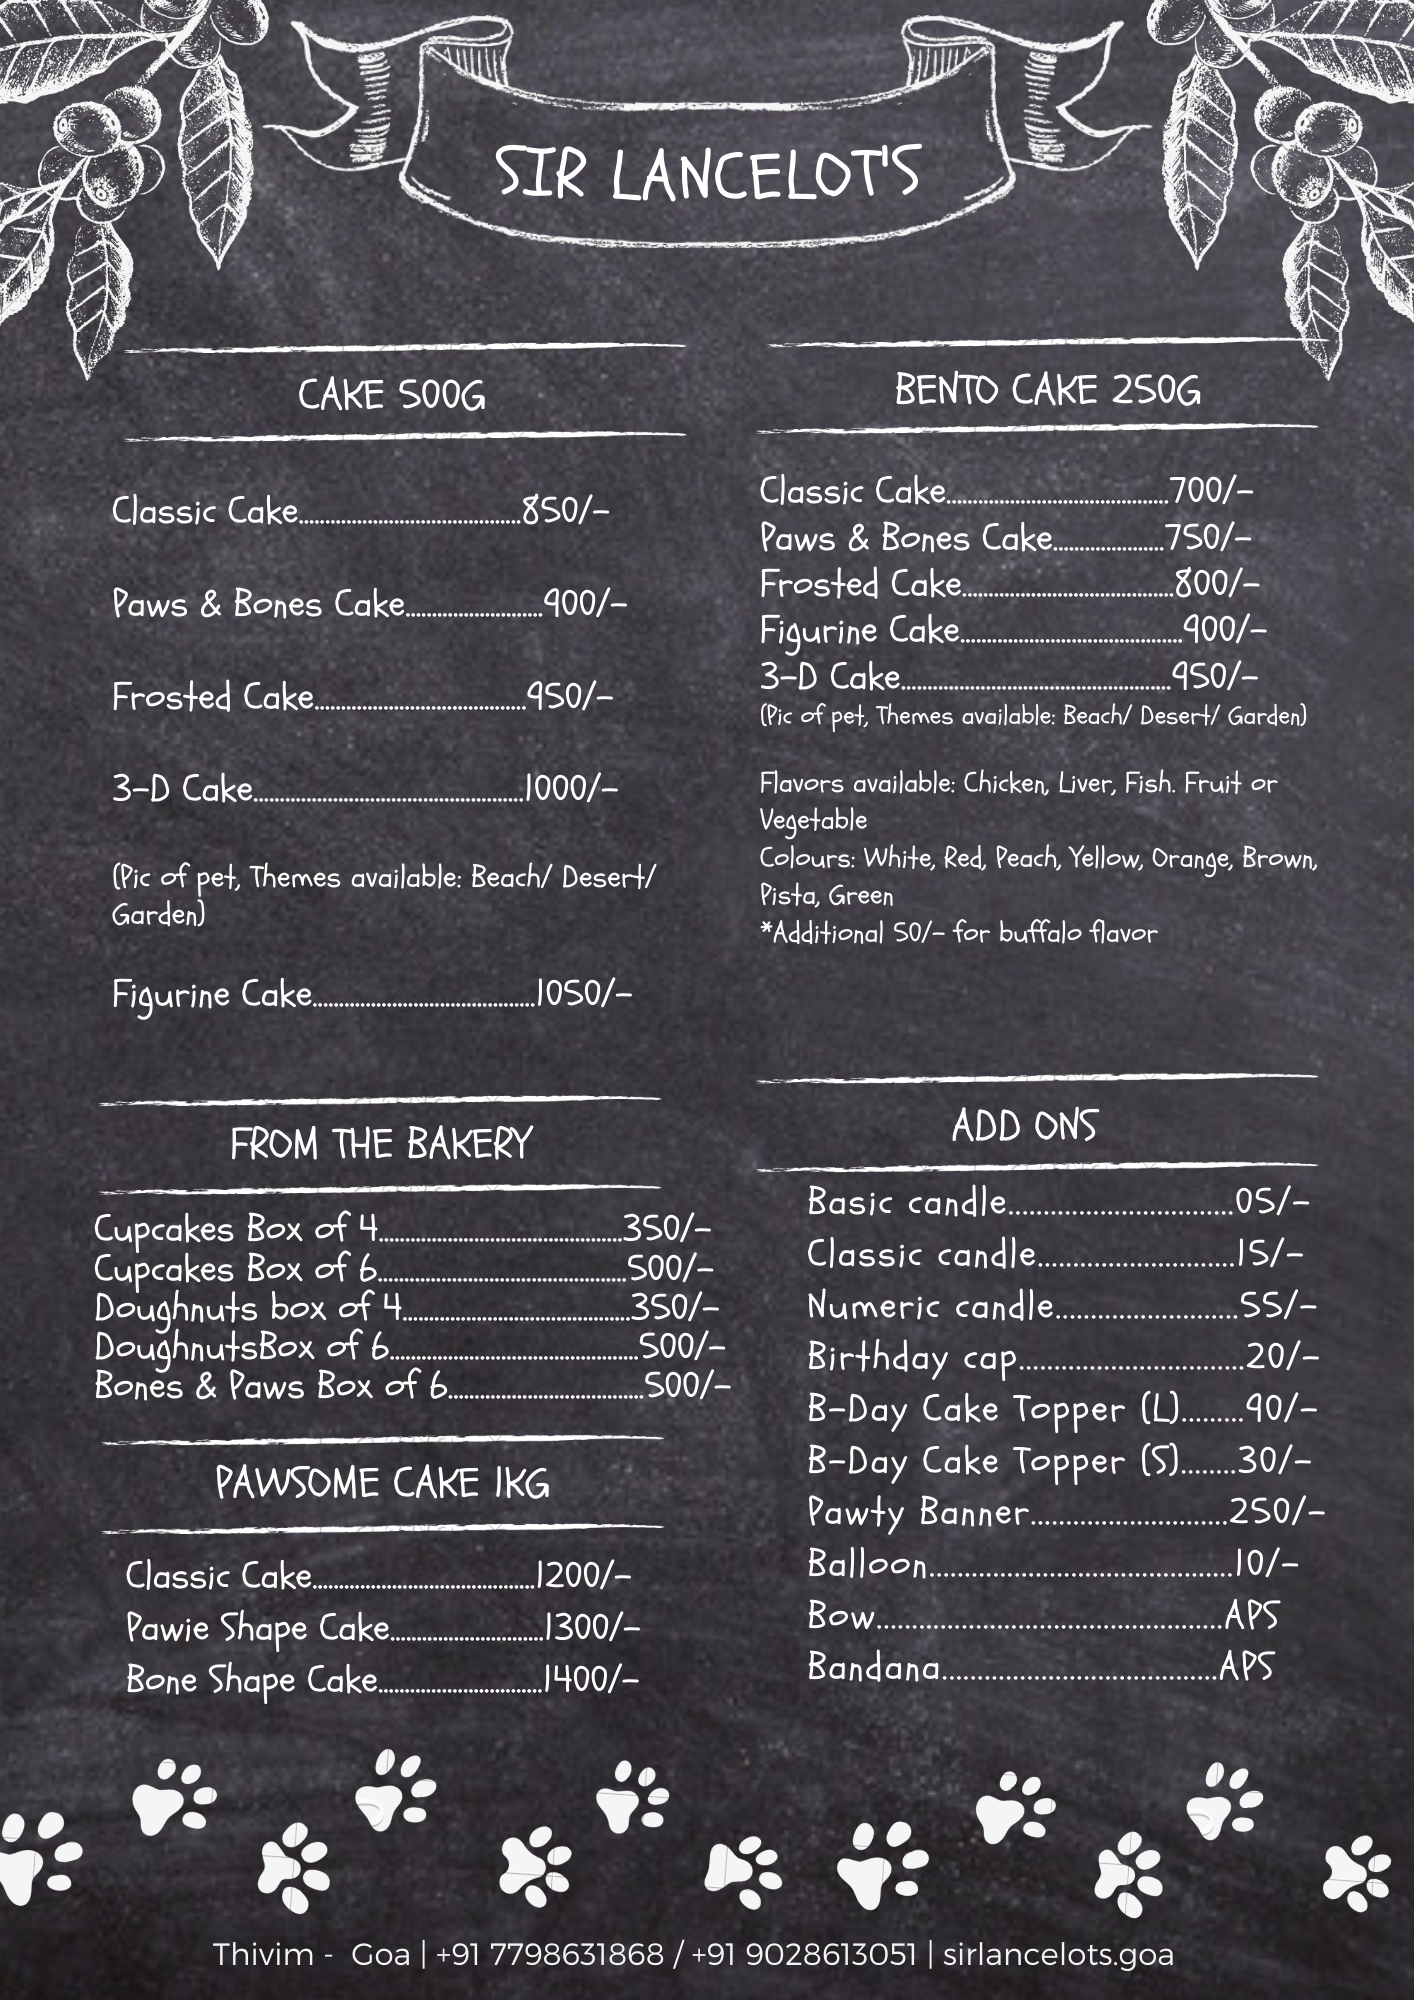 SIR LANCELOT'S
CAKE 500G
Classic Cake...................................850/-
Paws & Bones Cake......................900/-
Frosted Cake..................................950/-
3-D Cake...........................................1000/-
(Pic of pet, Themes available: Beach/ Desert/
Garden)
Figurine Cake...................................1050/-
BENTO CAKE 250G
Classic Cake...................................700/-
Paws & Bones Cake.................750/-
Frosted Cake.................................800/-
Figurine Cake...................................900/-
3-D Cake..........................................950/-
(Pic of pet, Themes available: Beach/ Desert/ Garden)
Flavors available: Chicken, Liver, Fish. Fruit or
Vegetable
Colours: White, Red, Peach, Yellow, Orange, Brown,
Pista, Green
*Additional 50/- for buffalo flavor
FROM THE BAKERY
Cupcakes Box of 4.......................................350/-
Cupcakes Box of 6.......................................500/-
Doughnuts box of 4....................................350/-
DoughnutsBox of 6.......................................500/-
Bones & Paws Box of 6...............................500/-
PAWSOME CAKE 1KG
Classic Cake...................................1200/-
Pawie Shape Cake........................1300/-
Bone Shape Cake..........................1400/-
ADD ONS
Basic candle................................05/-
Classic candle............................15/-
Numeric candle..........................55/-
Birthday cap................................20/-
B-Day Cake Topper (L).........90/-
B-Day Cake Topper (S)........30/-
Pawty Banner............................250/-
Balloon...........................................10/-
Bow.................................................APS
Bandana.......................................APS
Thivim - Goa | +91 7798631868 / +91 9028613051 | sirlancelots.goa